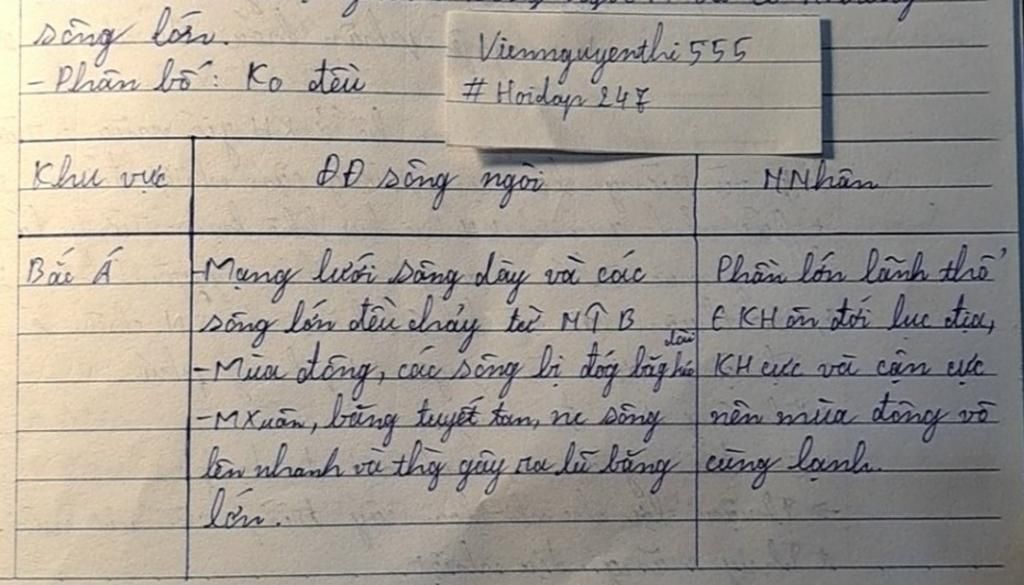 sông lớn.
- Phân bố: Ko đều
Viennguyenthi555
# Hoidap 247
Khu vực
ĐĐ sông ngòi
NNhân
Bắc Á
- Mạng lưới sông dày và các
sông lớn đều chảy từ N↑B
- Mùa đông, các sông bị đóg băg kéo dài
- MXuân, băng tuyết tan, nc sông
lên nhanh và thg gây ra lũ băng
lớn.
Phần lớn lãnh thổ
€ KH ôn đới lục địa,
KH cực và cận cực
nên mùa đông vô
cùng lạnh.